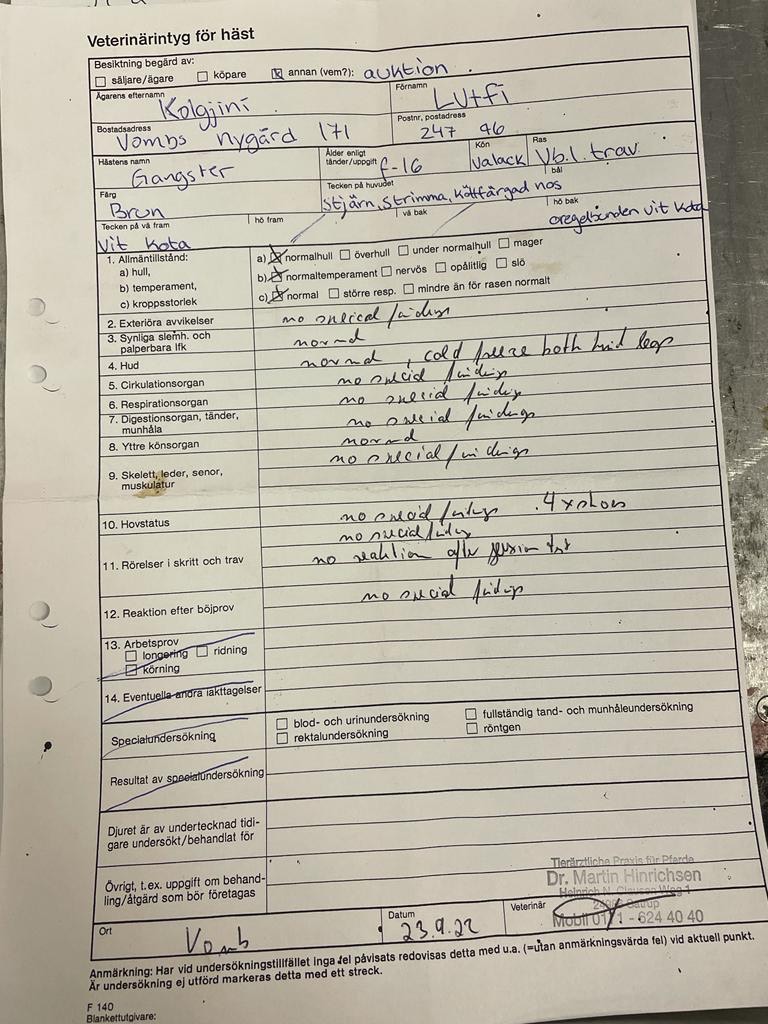 Veterinärintyg för häst
Besiktning begärd av:
säljare/ägare köpare annan (vem?): auktion
Ägarens efternamn Förnamn
Kolgjini Lutfi
Bostadsadress Postnr, postadress
Vombs Nygård 171 247 96
Hästens namn Ålder enligt tänder/uppgift Kön Ras
Gangster f-16 Valack Vb.l. trav
Färg Tecken på huvudet bål
Brun Stjärn, Strimma, Köttfärgad nos
Tecken på vä fram hö fram vä bak hö bak
Vit kota oregelbunden vit kota
1. Allmäntillstånd: a) normalhull överhull under normalhull mager
a) hull,
b) temperament, b) normaltemperament nervös opålitlig slö
c) kroppsstorlek c) normal större resp. mindre än för rasen normalt
2. Exteriöra avvikelser no special findings
3. Synliga slemh. och palperbara lfk normal
4. Hud normal, cold freeze both hind legs
5. Cirkulationsorgan no special findings
6. Respirationsorgan no special findings
7. Digestionsorgan, tänder, munhåla no special findings
8. Yttre könsorgan normal
9. Skelett, leder, senor, muskulatur no special findings
10. Hovstatus no special findings . 4 x shoes
no special findings
11. Rörelser i skritt och trav no reaktion after flexion test
12. Reaktion efter böjprov no special findings
13. Arbetsprov
longering ridning
körning
14. Eventuella andra iakttagelser
Specialundersökning blod- och urinundersökning fullständig tand- och munhåleundersökning
rektalundersökning röntgen
Resultat av specialundersökning
Djuret är av undertecknad tidi-
gare undersökt/behandlat för
Övrigt, t.ex. uppgift om behand-
ling/åtgärd som bör företagas
Tierärztliche Praxis für Pferde
Dr. Martin Hinrichsen
Heinrich N. Clausen Weg 1
Mobil 0171 - 624 40 40
Ort Datum Veterinär
Vomb 23.9.22
Anmärkning: Har vid undersökningstillfället inga fel påvisats redovisas detta med u.a. (=utan anmärkningsvärda fel) vid aktuell punkt.
Är undersökning ej utförd markeras detta med ett streck.
F 140
Blankettutgivare: